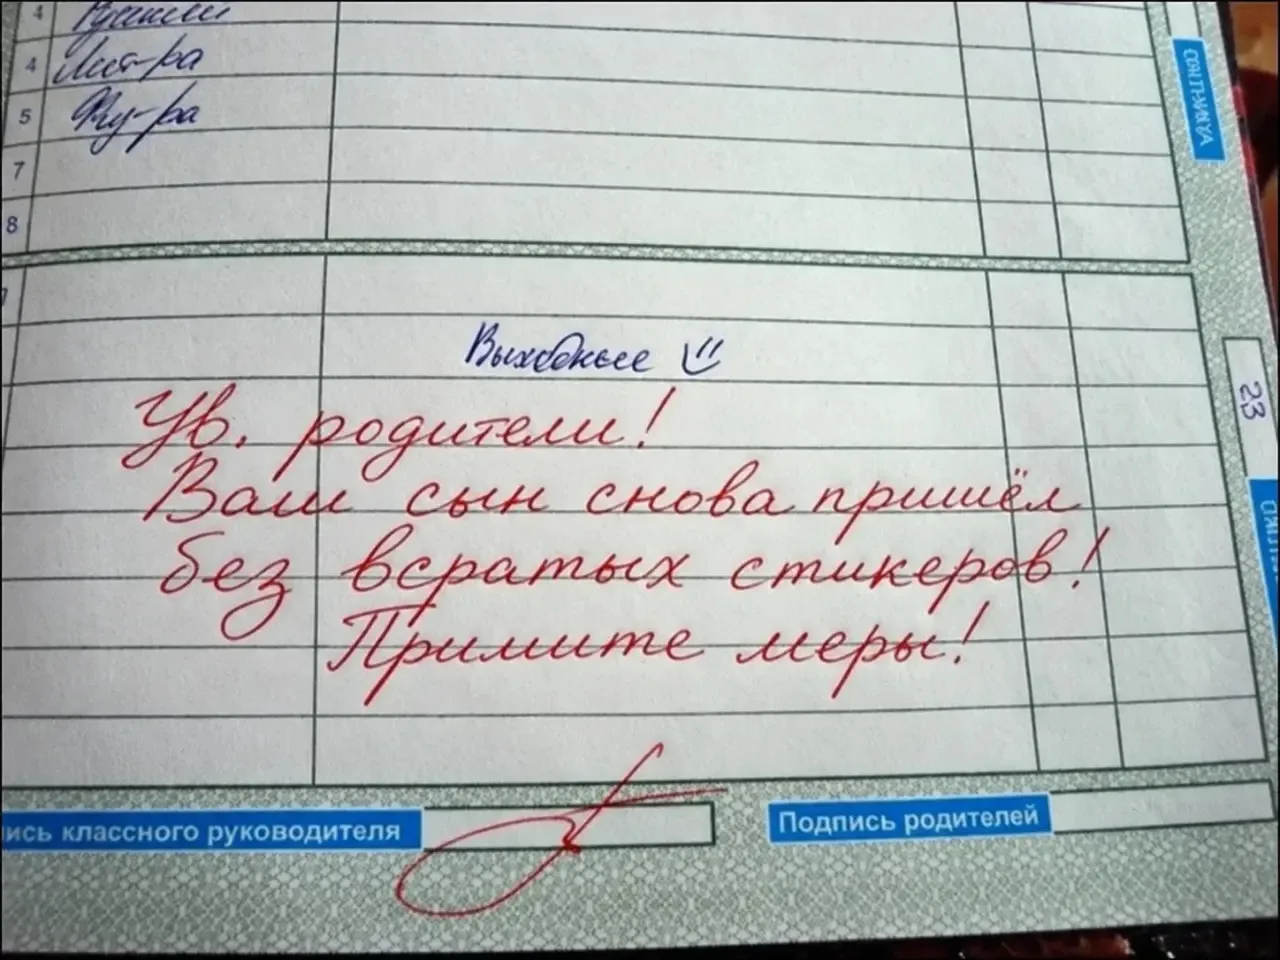 4 Русский
4 Лит-ра
5 Физ-ра
7
8
Выходные
Ув. родители!
Ваш сын снова пришёл
без всратых стикеров!
Примите меры!
23
пись классного руководителя
Подпись родителей